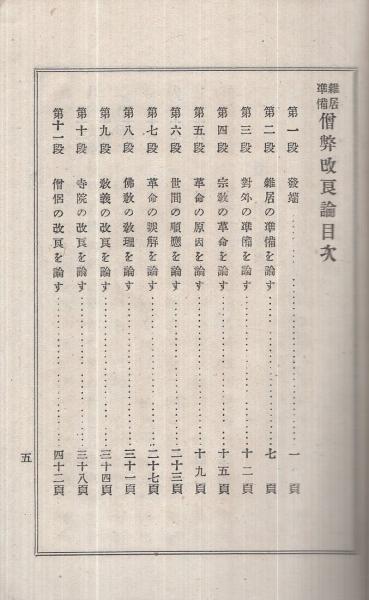 雜居準備僧弊改良論目次
第一段 發端 一頁
第二段 雜居の準備を論す 七頁
第三段 對外の準備を論す 十二頁
第四段 宗敎の革命を論す 十五頁
第五段 革命の原因を論す 十九頁
第六段 世間の順應を論す 二十三頁
第七段 革命の誤解を論す 二十七頁
第八段 佛敎の敎理を論す 三十一頁
第九段 敎義の改良を論す 三十四頁
第十段 寺院の改良を論す 三十八頁
第十一段 僧侶の改良を論す 四十二頁
五